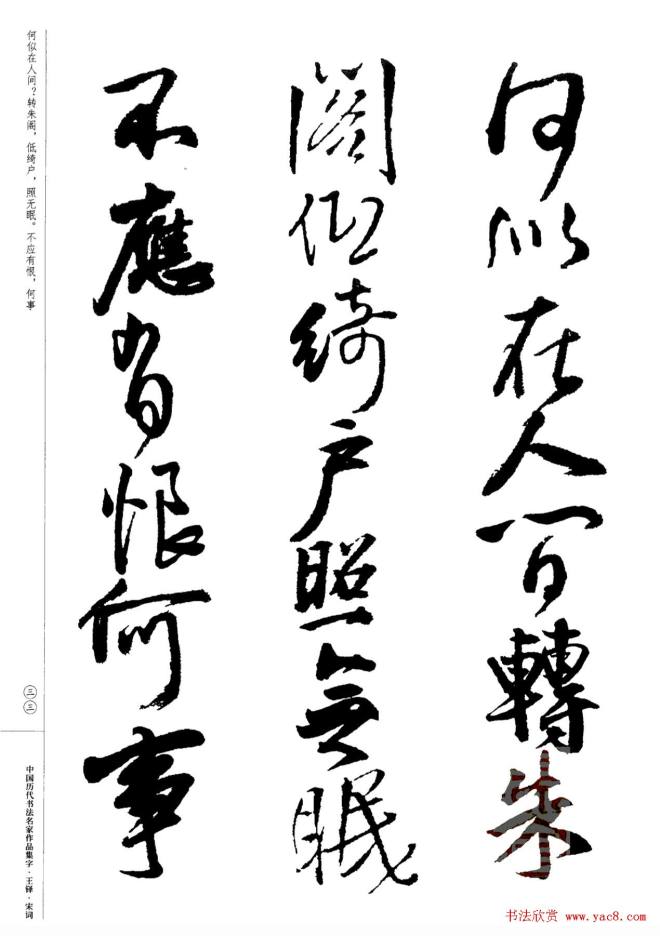 何似在人間轉朱
閣低綺户照無眠
不應有恨何事
何似在人间？转朱阁，低绮户，照无眠。不应有恨，何事
三三
中国历代书法名家作品集字·王铎·宋词
书法欣赏 www.yac8.com